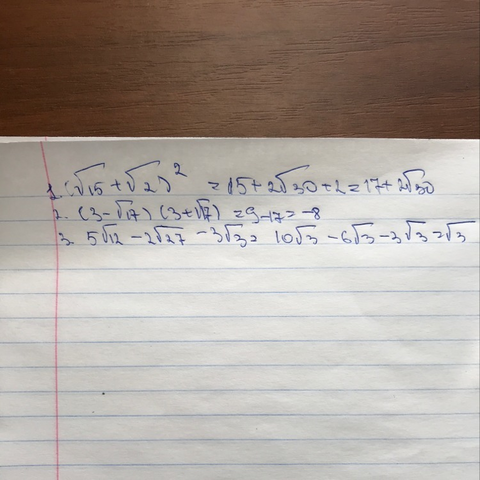 1. (√15 + √2)² = 15 + 2√30 + 2 = 17 + 2√30
2. (3 - √17) (3 + √7) = 9 - 17 = -8
3. 5√12 - 2√27 - 3√3 = 10√3 - 6√3 - 3√3 = √3